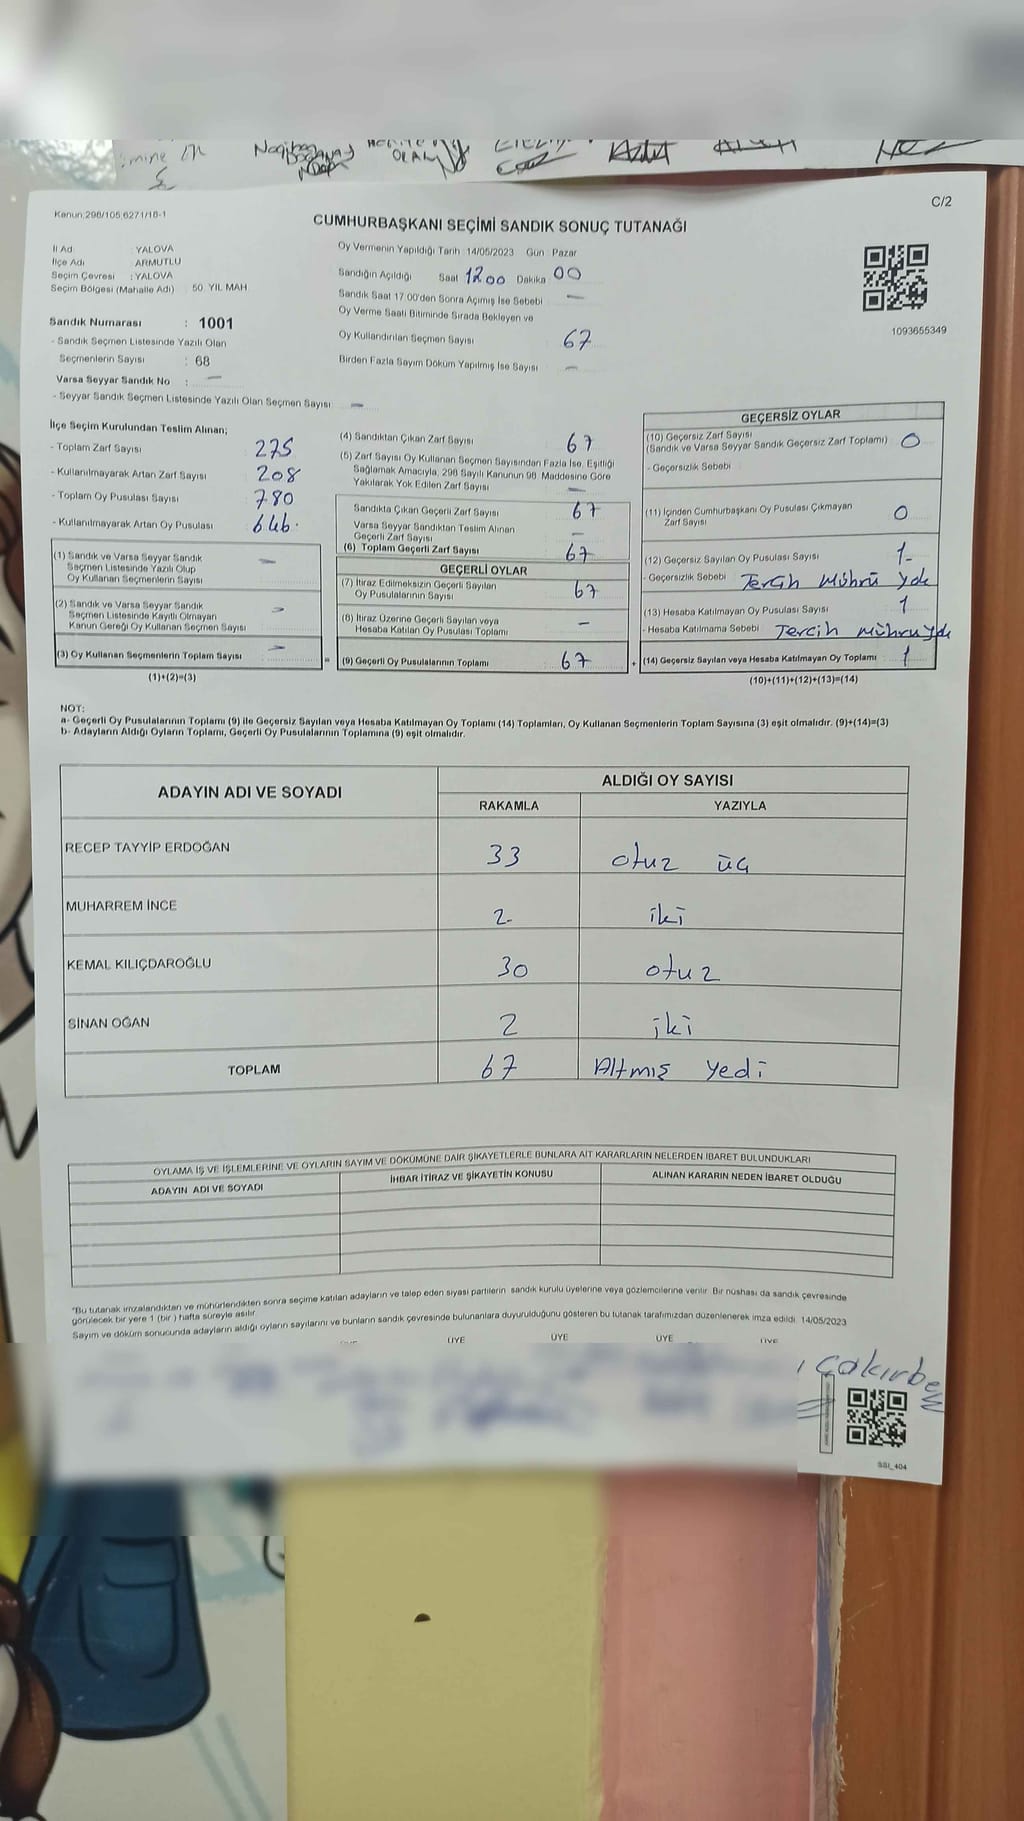 C/2
Kanun;298/105,6271/16-1
CUMHURBAŞKANI SEÇİMİ SANDIK SONUÇ TUTANAĞI
İl Adı : YALOVA
İlçe Adı : ARMUTLU
Seçim Çevresi : YALOVA
Seçim Bölgesi (Mahalle Adı) : 50. YIL MAH.
Sandık Numarası : 1001
- Sandık Seçmen Listesinde Yazılı Olan
Seçmenlerin Sayısı : 68
Varsa Seyyar Sandık No : —
- Seyyar Sandık Seçmen Listesinde Yazılı Olan Seçmen Sayısı —
Oy Vermenin Yapıldığı Tarih :14/05/2023 Gün : Pazar
Sandığın Açıldığı Saat 1200 Dakika 00
Sandık Saat 17:00'den Sonra Açımış İse Sebebi —
Oy Verme Saati Bitiminde Sırada Bekleyen ve
Oy Kullandırılan Seçmen Sayısı 67
Birden Fazla Sayım Döküm Yapılmış İse Sayısı —
1093655349
İlçe Seçim Kurulundan Teslim Alınan;
- Toplam Zarf Sayısı 275
- Kullanılmayarak Artan Zarf Sayısı 208
- Toplam Oy Pusulası Sayısı 780
- Kullanılmayarak Artan Oy Pusulası 646.
(1) Sandık ve Varsa Seyyar Sandık
Seçmen Listesinde Yazılı Olup
Oy Kullanan Seçmenlerin Sayısı —
(2) Sandık ve Varsa Seyyar Sandık
Seçmen Listesinde Kayıtlı Olmayan
Kanun Gereği Oy Kullanan Seçmen Sayısı —
(3) Oy Kullanan Seçmenlerin Toplam Sayısı —
(1)+(2)=(3)
(4) Sandıktan Çıkan Zarf Sayısı 67
(5) Zarf Sayısı Oy Kullanan Seçmen Sayısından Fazla İse, Eşitliği
Sağlamak Amacıyla, 298 Sayılı Kanunun 98. Maddesine Göre
Yakılarak Yok Edilen Zarf Sayısı —
Sandıkta Çıkan Geçerli Zarf Sayısı 67
Varsa Seyyar Sandıktan Teslim Alınan
Geçerli Zarf Sayısı —
(6) Toplam Geçerli Zarf Sayısı 67
GEÇERLİ OYLAR
(7) İtiraz Edilmeksizin Geçerli Sayılan
Oy Pusulalarının Sayısı 67
(8) İtiraz Üzerine Geçerli Sayılan veya
Hesaba Katılan Oy Pusulası Toplamı —
= (9) Geçerli Oy Pusulalarının Toplamı 67
GEÇERSİZ OYLAR
(10) Geçersiz Zarf Sayısı
(Sandık ve Varsa Seyyar Sandık Geçersiz Zarf Toplamı) 0
- Geçersizlik Sebebi
(11) İçinden Cumhurbaşkanı Oy Pusulası Çıkmayan
Zarf Sayısı 0
(12) Geçersiz Sayılan Oy Pusulası Sayısı 1-
- Geçersizlik Sebebi Tercih Mührü Yok
(13) Hesaba Katılmayan Oy Pusulası Sayısı 1
- Hesaba Katılmama Sebebi Tercih mührü yok
+ (14) Geçersiz Sayılan veya Hesaba Katılmayan Oy Toplamı 1
(10)+(11)+(12)+(13)=(14)
NOT:
a- Geçerli Oy Pusulalarının Toplamı (9) ile Geçersiz Sayılan veya Hesaba Katılmayan Oy Toplamı (14) Toplamları, Oy Kullanan Seçmenlerin Toplam Sayısına (3) eşit olmalıdır. (9)+(14)=(3)
b- Adayların Aldığı Oyların Toplamı, Geçerli Oy Pusulalarının Toplamına (9) eşit olmalıdır.
ADAYIN ADI VE SOYADI
ALDIĞI OY SAYISI
RAKAMLA YAZIYLA
RECEP TAYYİP ERDOĞAN 33 otuz üç
MUHARREM İNCE 2- iki
KEMAL KILIÇDAROĞLU 30 otuz
SİNAN OĞAN 2 iki
TOPLAM 67 Altmış Yedi
OYLAMA İŞ VE İŞLEMLERİNE VE OYLARIN SAYIM VE DÖKÜMÜNE DAİR ŞİKAYETLERLE BUNLARA AİT KARARLARIN NELERDEN İBARET BULUNDUKLARI
ADAYIN ADI VE SOYADI İHBAR İTİRAZ VE ŞİKAYETİN KONUSU ALINAN KARARIN NEDEN İBARET OLDUĞU
"Bu tutanak imzalandıktan ve mühürlendikten sonra seçime katılan adayların ve talep eden siyasi partilerin sandık kurulu üyelerine veya gözlemcilerine verilir. Bir nüshası da sandık çevresinde
görülecek bir yere 1 (bir ) hafta süreyle asılır.
Sayım ve döküm sonucunda adayların aldığı oyların sayılarını ve bunların sandık çevresinde bulunanlara duyurulduğunu gösteren bu tutanak tarafımızdan düzenlenerek imza edildi. 14/05/2023
ÜYE ÜYE ÜYE ÜYE
SSI_404